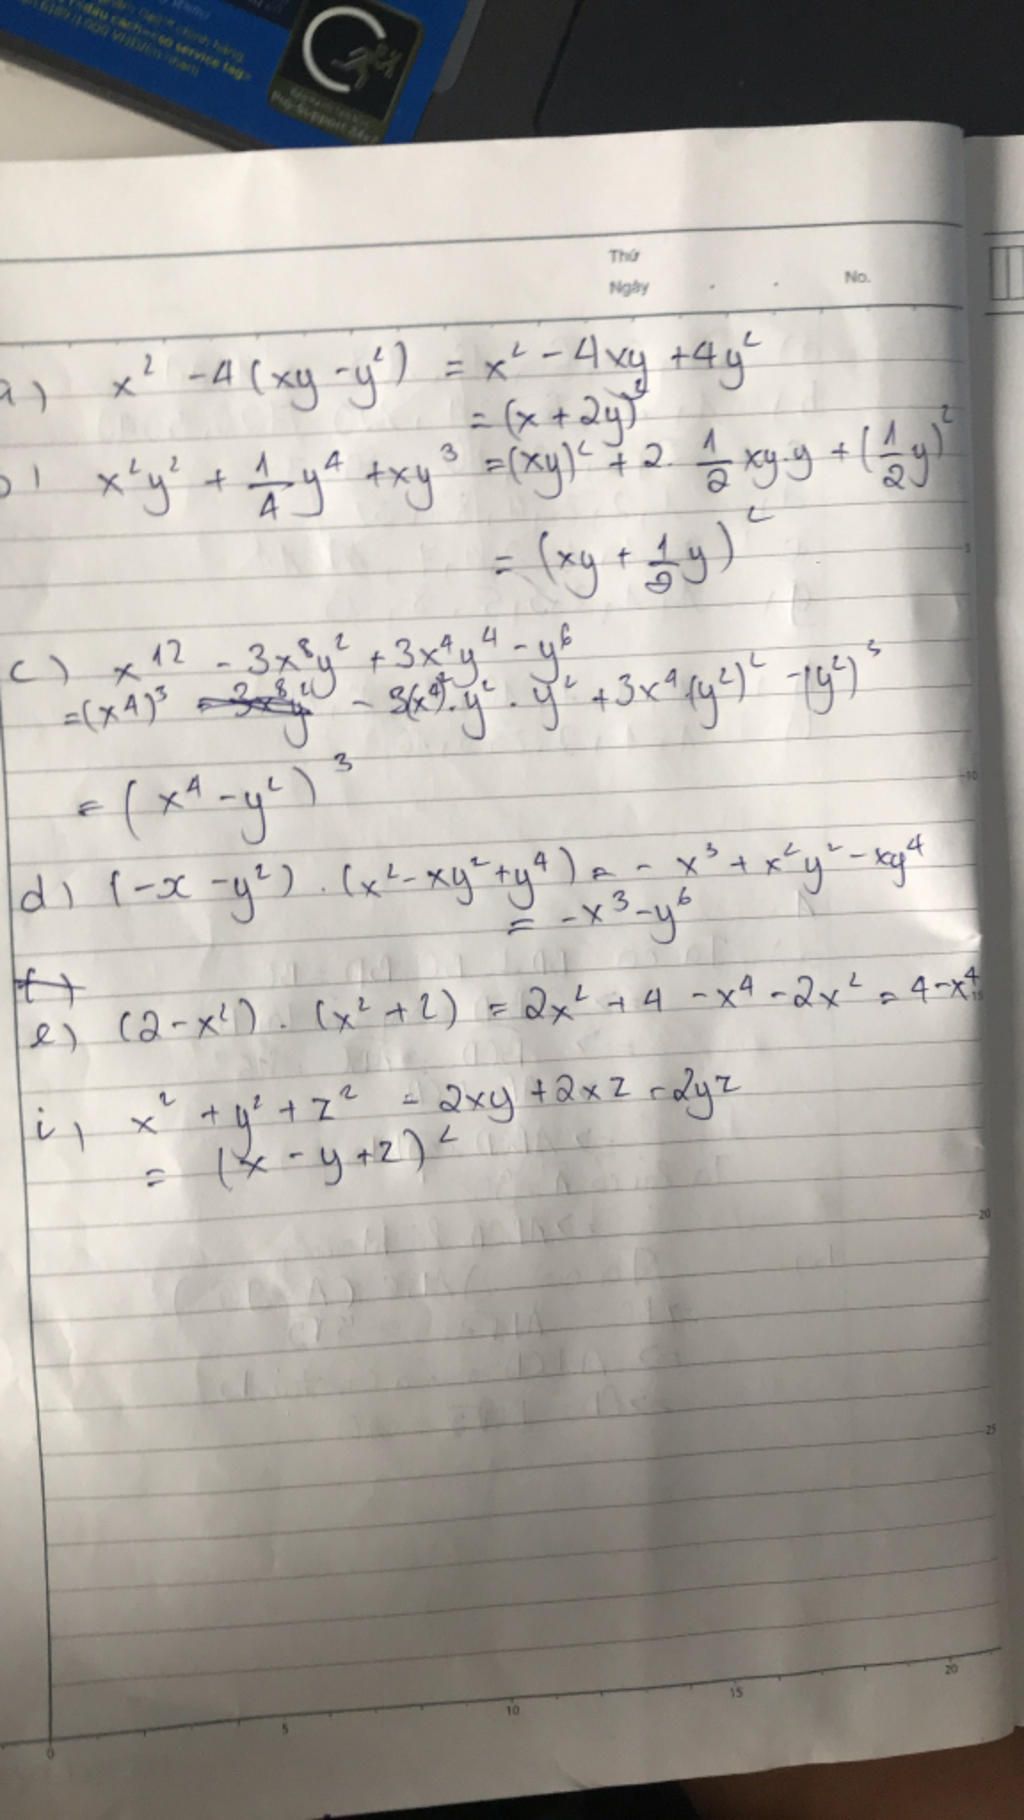 chính hãng
service tag
Thứ
Ngày . . No.
a) x² - 4(xy - y²) = x² - 4xy + 4y²
= (x + 2y)²
b) x²y² + 1/4 y⁴ + xy³ = (xy)² + 2. 1/2 xy.y + (1/2 y)²
= (xy + 1/2 y)²
c) x¹² - 3x⁸y² + 3x⁴y⁴ - y⁶
= (x⁴)³ - 3(x⁴)².y² . y² + 3x⁴.(y²)² - (y²)³
= (x⁴ - y²)³
d) (-x - y²) . (x² - xy² + y⁴) = - x³ + x²y² - xy⁴
= -x³ - y⁶
f)
e) (2 - x²) . (x² + 2) = 2x² + 4 - x⁴ - 2x² = 4 - x⁴
i) x² + y² + z² - 2xy + 2xz - 2yz
= (x - y + z)²
5
10
15
20
25
0 5 10 15 20